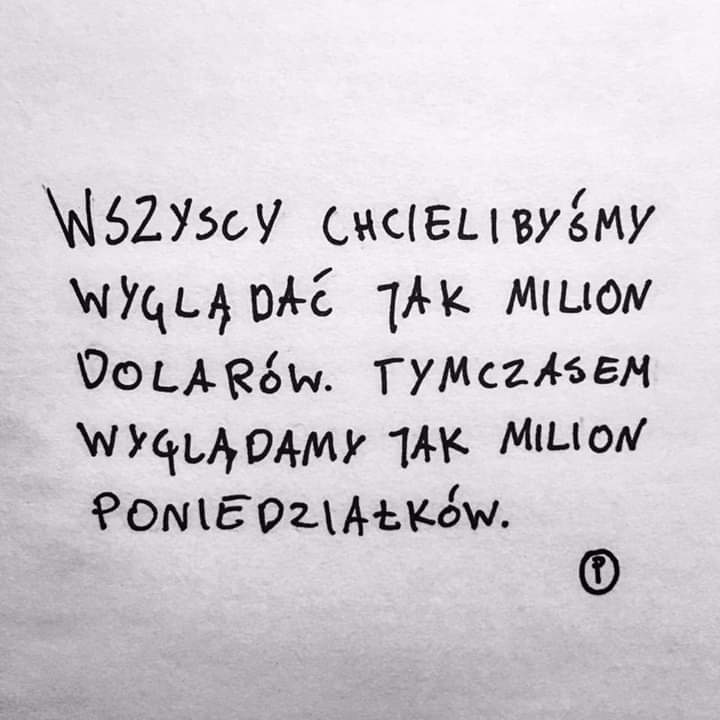 WSZYSCY CHCIELIBYŚMY
WYGLĄDAĆ JAK MILION
DOLARÓW. TYMCZASEM
WYGLĄDAMY JAK MILION
PONIEDZIAŁKÓW.
P